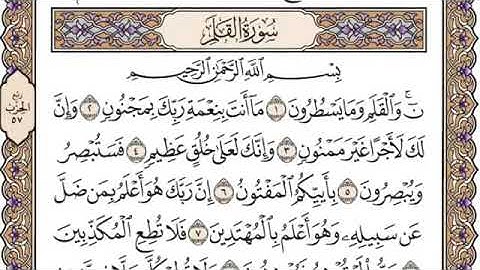 سُورَةُ القَلَمِ
بِسْمِ ٱللَّهِ ٱلرَّحْمَٰنِ ٱلرَّحِيمِ
نٓ ۚ وَٱلْقَلَمِ وَمَا يَسْطُرُونَ ١ مَآ أَنتَ بِنِعْمَةِ رَبِّكَ بِمَجْنُونٍ ٢ وَإِنَّ
لَكَ لَأَجْرًا غَيْرَ مَمْنُونٍ ٣ وَإِنَّكَ لَعَلَىٰ خُلُقٍ عَظِيمٍ ٤ فَسَتُبْصِرُ
وَيُبْصِرُونَ ٥ بِأَييِّكُمُ ٱلْمَفْتُونُ ٦ إِنَّ رَبَّكَ هُوَ أَعْلَمُ بِمَن ضَلَّ
عَن سَبِيلِهِۦ وَهُوَ أَعْلَمُ بِٱلْمُهْتَدِينَ ٧ فَلَا تُطِعِ ٱلْمُكَذِّبِينَ
ربع
الحزب
٥٧